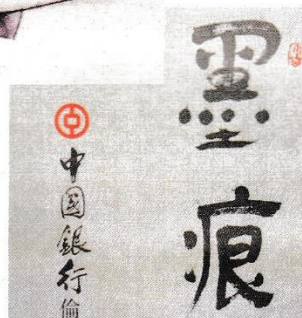 墨痕
中国銀行倫